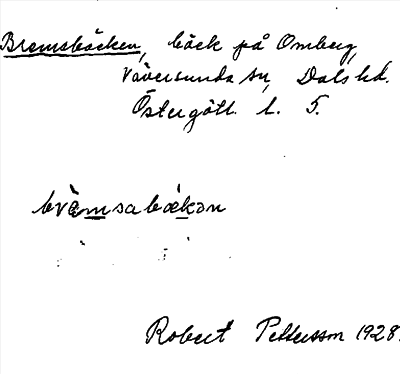 Bromsbäcken, bäck på Omberg,
Väversunda sn, Dals hd.
Östergötl. l. 5.
brò̀msabäkən
Robert Pettersson 1928.